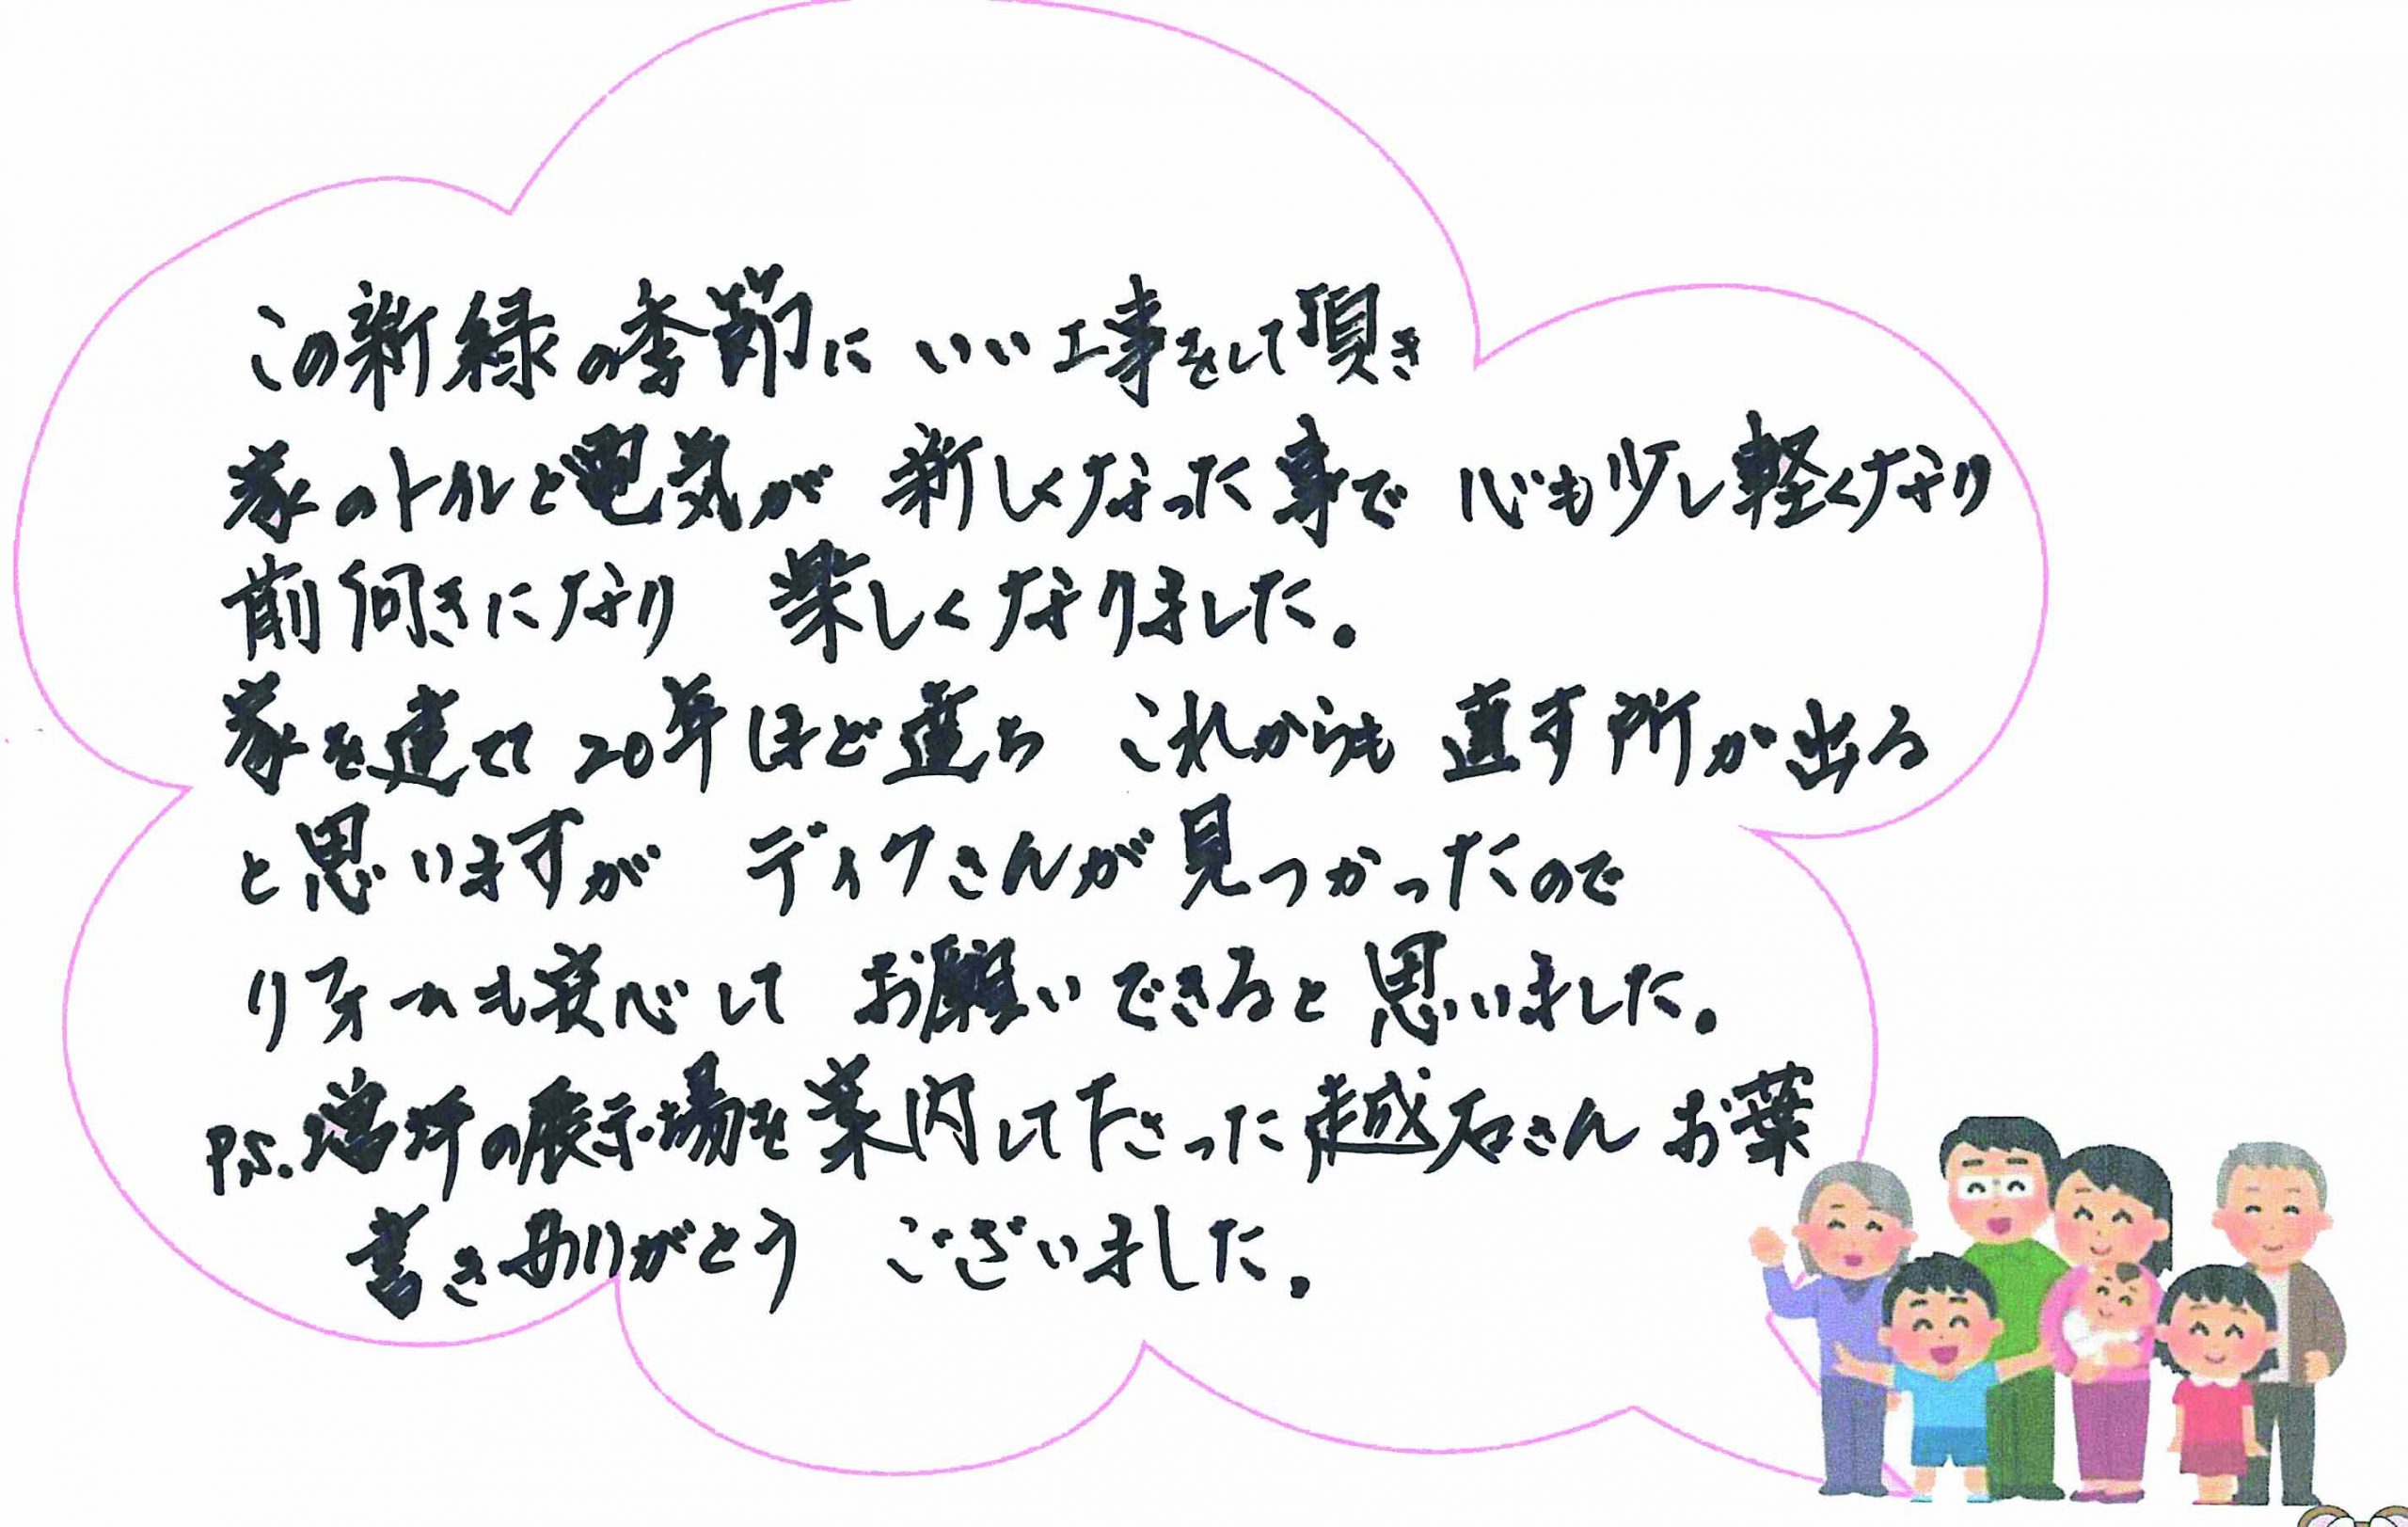 この新緑の季節に いい工事をして頂き
家のトイレと電気が 新しくなった事で 心も少し軽くなり
前向きになり 楽しくなりました。
家を建てて 20年ほど建ち これからも 直す所が出る
と思いますが ディクさんが見つかったので
リフォームも安心して お願いできると 思いました。
P.S. の展示場を案内して下さった越石さん お葉
書きありがとう ございました。